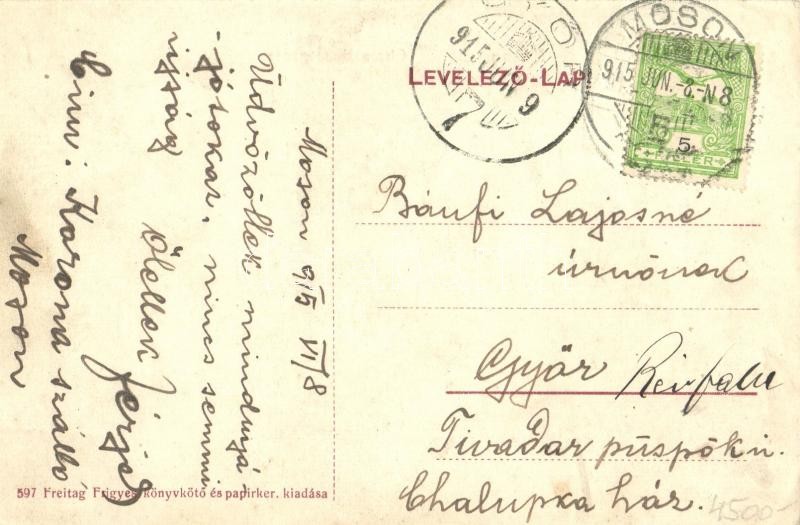 LEVELEZŐ-LAP
GYŐR
915 JUN 9
MOSON
915 JUN.-8.-N8
5
FILLÉR
Moson 915 VI/8
Üdvözöllek mindnyá-
jótokat, nincs semmi
ujság
Ölellek
Címr: Korona szálló
Moson
Bánfi Lajosné
úrnőnek
Győr Révfalu
Tivadar püspök u.
Chalupka ház.
4500-
597 Freitag Frigyes könyvkötő és papirker. kiadása